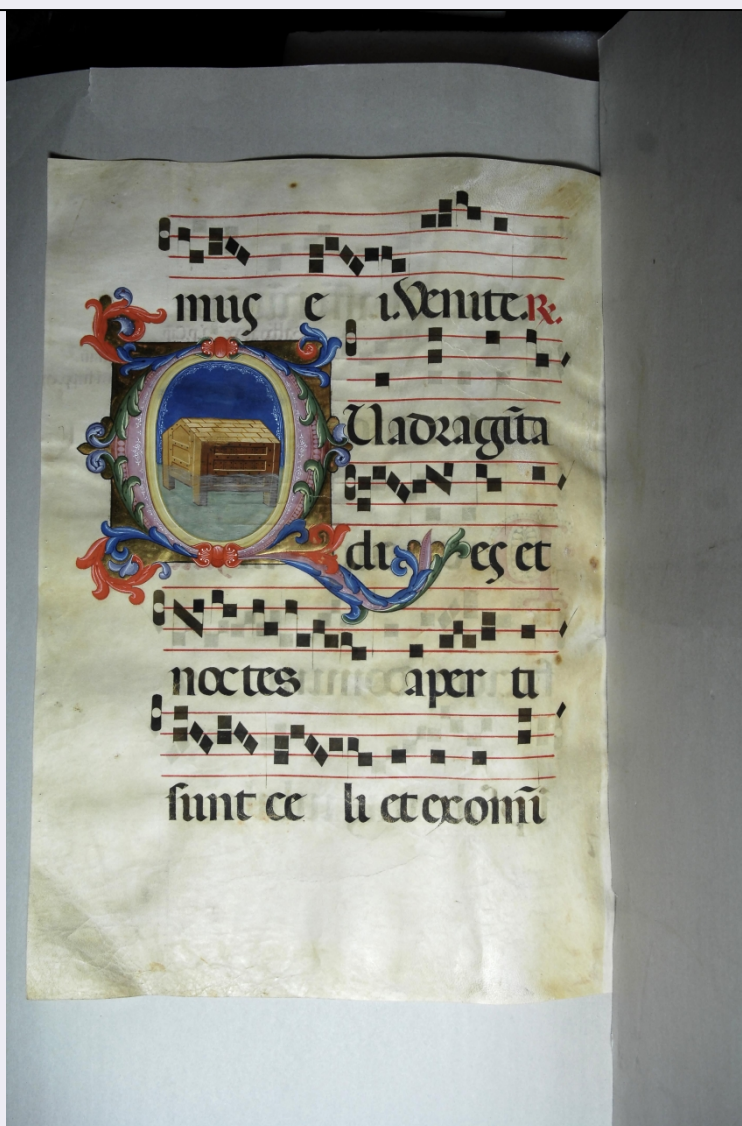 mus e i. Venite. R.
QUadragīta
di es et
noctes aper ti
sunt ce li et ex omī